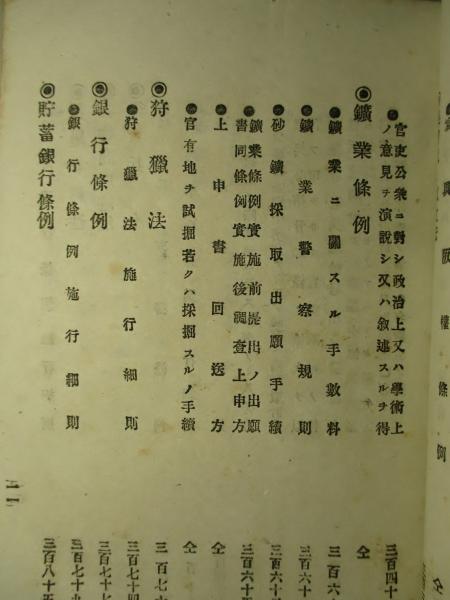 ●官吏公衆ニ對シ政治上又ハ學術上
ノ意見ヲ演説シ又ハ敘述スルヲ得 三百四十
◎鑛業條例 仝
●鑛業ニ關スル手數料 三百六
●鑛業警察規則 三百六十
●砂鑛採取出願手續 三百六十
●鑛業條例實施前提出ノ出願
書同條例實施後調査上申方 三百六十五
●上申書回送方 仝
●官有地ヲ試掘若クハ採掘スルノ手續 仝
◎狩獵法 三百七十
●狩獵法施行細則 三百七十四
◎銀行條例 三百七十七
●銀行條例施行細則 三百七十九
◎貯蓄銀行條例 三百八十五
二一